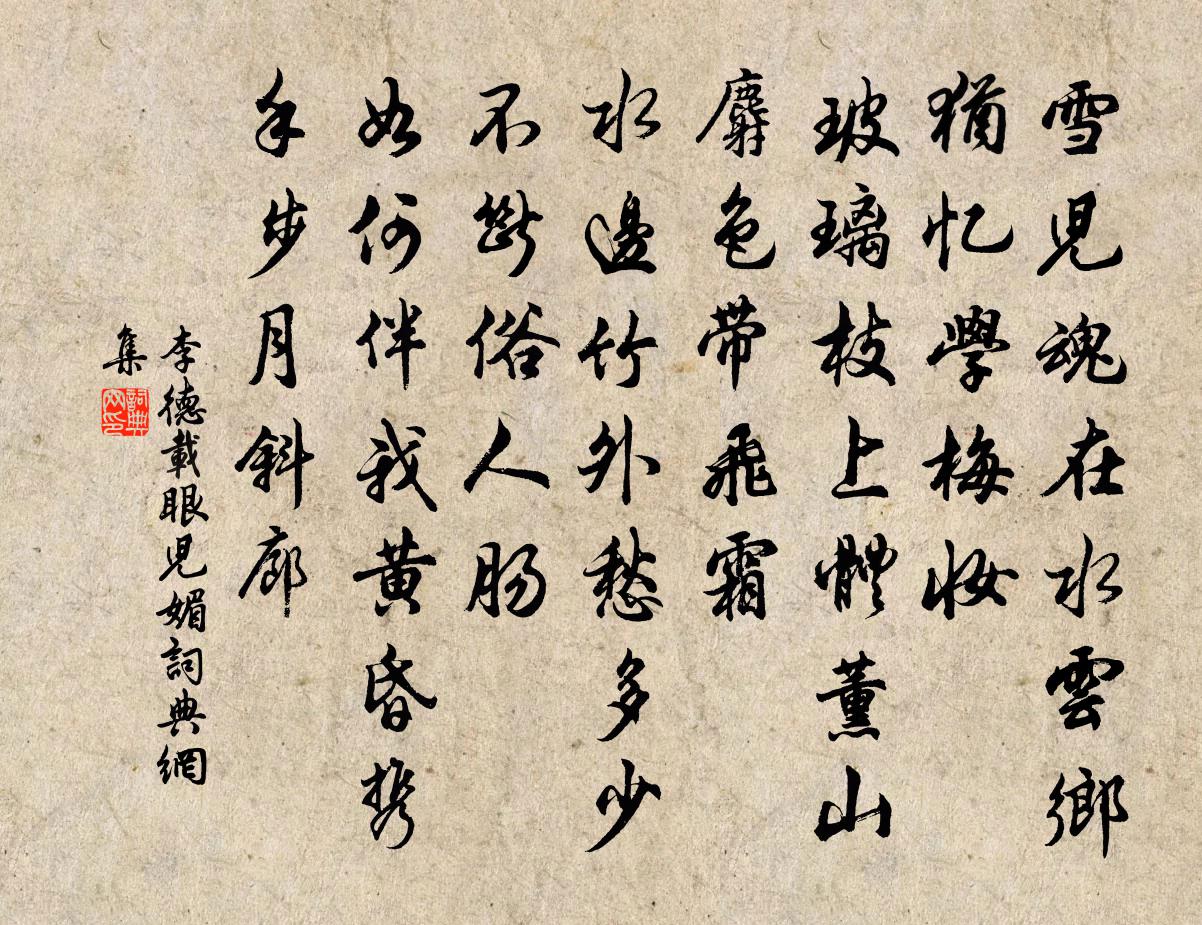 雪児魂在水雲鄉
猶忆學梅妆
玻璃枝上體薰山
麝色带飛霜
水邊竹外愁多少
不斷俗人肠
如何伴我黄昏携
手步月斜廊
李德載眼児媚詞典網
集
詞典
网印